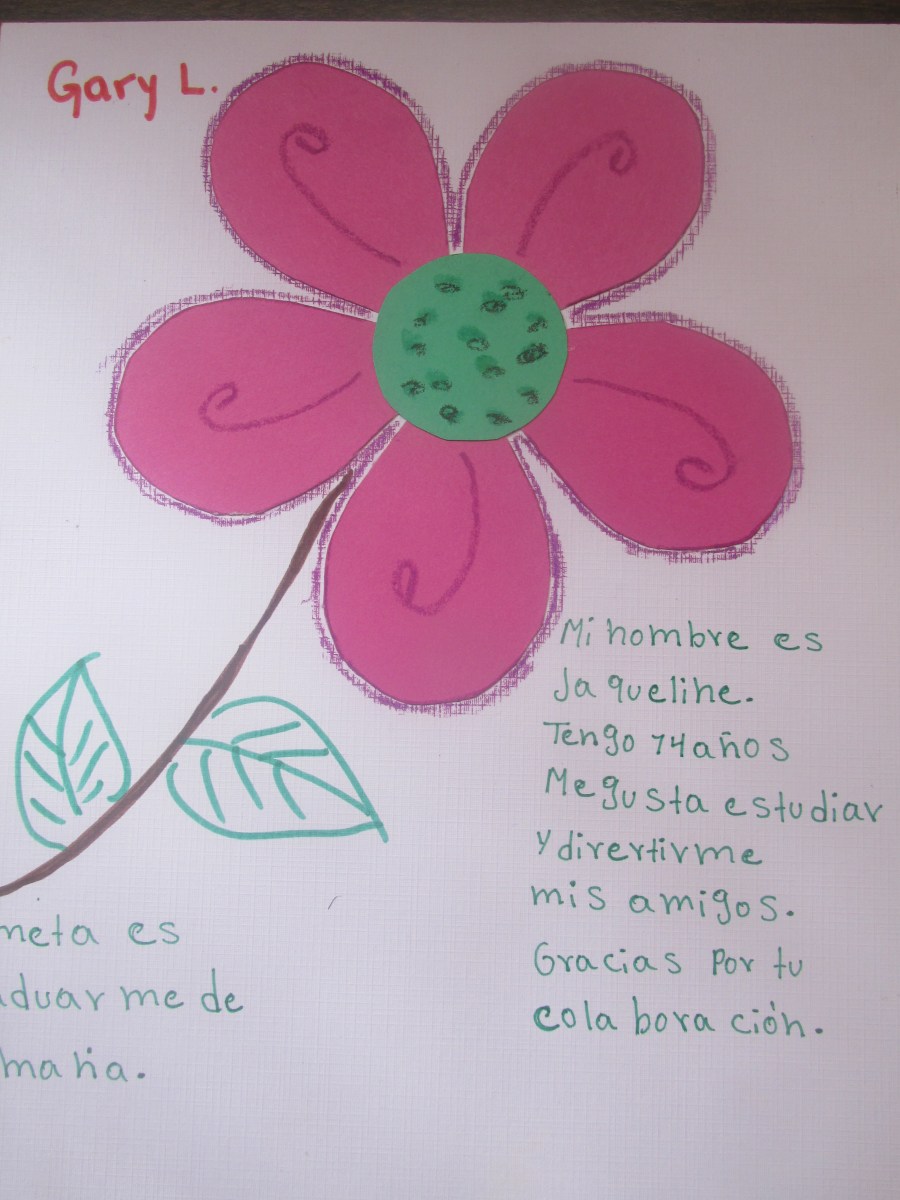 Gary L.
Mi nombre es
Jaqueline.
Tengo 14 años
Me gusta estudiar
y divertirme
mis amigos.
Gracias por tu
colaboración.
meta es
aduarme de
maria.